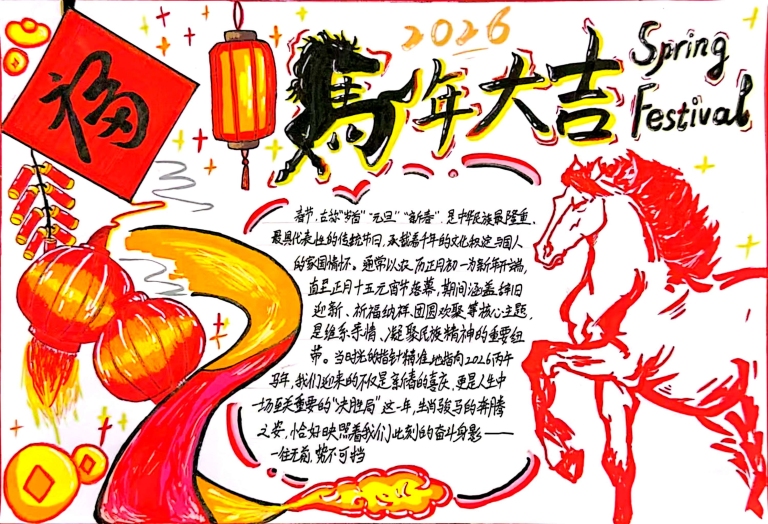 福
2026
馬年大吉
Spring
Festival
春节,古称“岁首”“元旦”“新春”,是中华民族最隆重、
最具代表性的传统节日,承载着千年的文化积淀与国人
的家国情怀。通常以农历正月初一为新年开端,
直至正月十五元宵节落幕,期间涵盖辞旧
迎新、祈福纳祥、团圆欢聚等核心主题,
是维系亲情、凝聚民族精神的重要纽
带。当时光的指针精准地指向2026丙午
马年,我们迎来的不仅是新春的喜庆,更是人生中
一场至关重要的“决胜局”这一年,生肖骏马的奔腾
之姿,恰好映照着我们此刻的奋斗身影——
一往无前,势不可挡